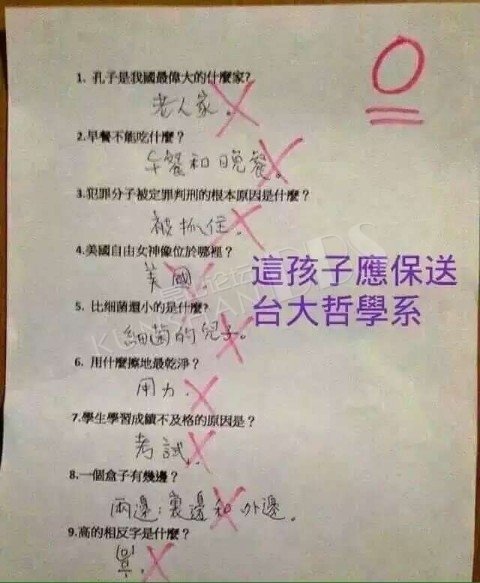 0
1. 孔子是我國最偉大的什麼家?
老人家。
2.早餐不能吃什麼?
午餐和晚餐。
3.犯罪分子被定罪判刑的根本原因是什麼?
被抓住。
4.美國自由女神像位於哪裡?
美國。
這孩子應保送
台大哲學系
5. 比細菌還小的是什麼?
細菌的兒子。
6. 用什麼擦地最乾淨?
用力.
7.學生學習成績不及格的原因是?
考試.
8.一個盒子有幾邊?
兩邊:裏邊和外邊。
9.高的相反字是什麼?